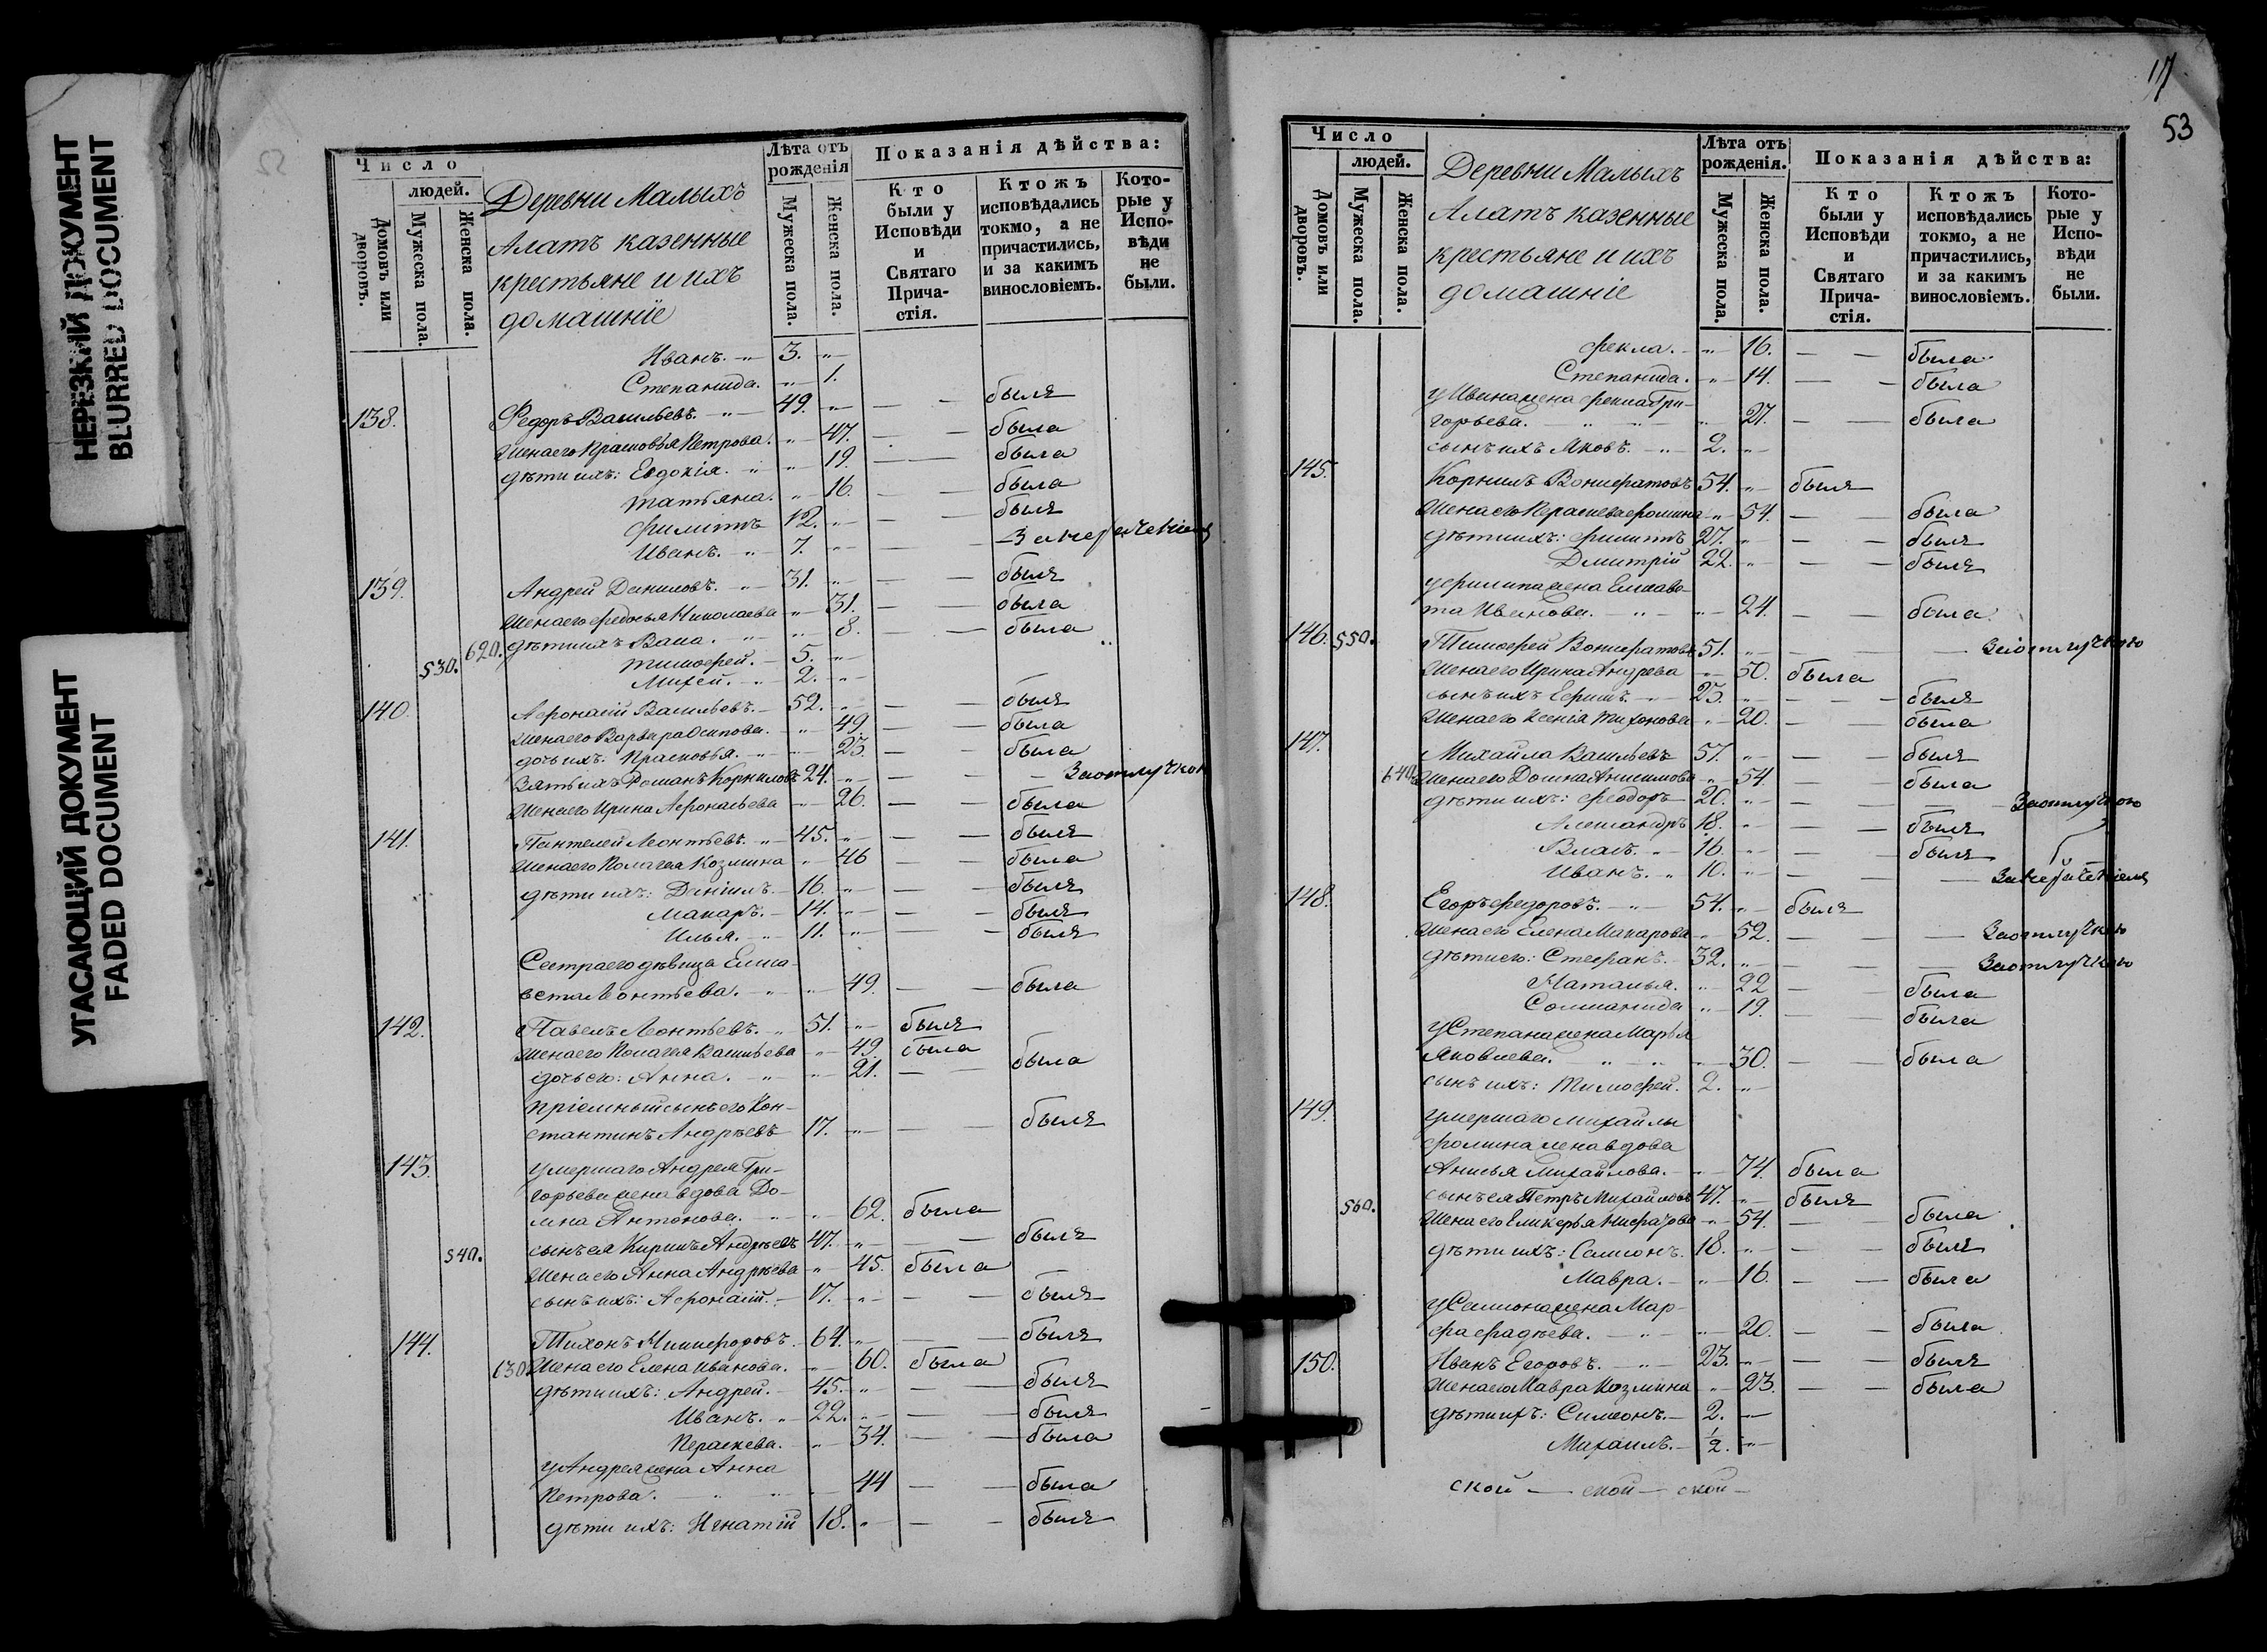 НЕРЕЗКИЙ ДОКУМЕНТ
BLURRED DOCUMENT
УГАСАЮЩИЙ ДОКУМЕНТ
FADED DOCUMENT
Число
людей.
Домовъ или дворовъ.
Мужеска пола.
Женска пола.
Деревни Малыхъ
Алатъ казенные
крестьяне и ихъ
домашніе
Лѣта отъ рожденія
Мужеска пола.
Женска пола.
Показанія дѣйства:
Кто были у Исповѣди и Святаго Прича-стія.
Ктожъ исповѣдались токмо, а не причастились, и за какимъ винословіемъ.
Кото-рые у Испо-вѣди не были.
Иванъ. 3.
Степанида. 1.
138. Федоръ Васильевъ. 49. — — былъ
Жена его Прасковья Петрова. 47. — — была
дѣти ихъ: Евдокія. 19. — — была
Татьяна. 16. — — была
Филиппъ 12. — — былъ
Иванъ. 7. — —
139. Андрей Даниловъ. 31. — — былъ
Жена его Федосья Николаева 31. — — была
620. дѣти ихъ 8. — — была
530. Тимофей. 5.
Михей. 2.
140. Афонасій Васильевъ. 52. — — былъ
Жена его Варвара Осипова. 49. — — была
дочь ихъ: Прасковья. 23. — — была
Зять ихъ Романъ Корниловъ 24. — — За отлучкою
Жена его Ирина Афонасьева 26. — — была
141. Пантелей Леонтьевъ. 45. — — былъ
Жена его Пелагея Козмина 46 — — была
дѣти ихъ: Даніилъ. 16. — — былъ
Макаръ. 14. — — былъ
Илья. 11. — — былъ
Сестра его дѣвица Елиса-
вета Леонтьева. 49. — — была
142. Павелъ Леонтьевъ. 51. былъ
Жена его Пелагея Васильева 49. была
дочь его: Анна. 21. — — была
пріемный сынъ его Кон-
стантинъ Андреевъ 17. — — былъ
143. умершаго Андрея Гри-
горьева жена вдова До-
мна Антонова. 62. была
540. сынъ ея Кирилъ Андреевъ 47. — — былъ
Жена его Анна Андреева 45. была
сынъ ихъ: Афонасій. 17. — — былъ
144. Тихонъ Никифоровъ. 64. — — былъ
630. Жена его Елена Иванова. 60. была
дѣти ихъ: Андрей. 45. — — былъ
Иванъ. 22. — — былъ
Параскева. 34. — — была
у Андрея жена Анна
Петрова. 44 — — была
дѣти ихъ: Игнатій 18. — — былъ
17
53
Число
людей.
Домовъ или дворовъ.
Мужеска пола.
Женска пола.
Деревни Малыхъ
Алатъ казенные
крестьяне и ихъ
домашніе
Лѣта отъ рожденія.
Мужеска пола.
Женска пола.
Показанія дѣйства:
Кто были у Исповѣди и Святаго Прича-стія.
Ктожъ исповѣдались токмо, а не причастились, и за какимъ винословіемъ.
Кото-рые у Испо-вѣди не были.
Фекла. 16. — — была
Степанида. 14. — — была
у Ивана жена Фекла Гри-
горьева. 27. — — была
сынъ ихъ Яковъ. 2.
145. Корнилъ 54. былъ
Жена его Параскева Фомина 54. — была
дѣти ихъ: Филиппъ 27. — — былъ
Дмитрій 22. — — былъ
у Филипа жена Елисаве-
та Иванова. 24. — — была
146. 550. Тимофей 51. — — За отлучкою
Жена его Ирина Андреева 50. была
сынъ ихъ Ефимъ. 23. — — былъ
Жена его Ксенія Тихонова 20. — — была
147. Михайла Васильевъ 57. — — былъ
640. Жена его Домна Анисимова 54. — была
дѣти ихъ: Феодоръ 20. — — За отлучкою
Александръ 18. — — былъ
Власъ. 16. — — былъ
Иванъ. 10. — —
148. Егоръ Федоровъ. 54. былъ
Жена его Елена Макарова 52. — — За отлучкою
дѣти его: Стефанъ. 32. — — За отлучкою
Наталья. 22 — была
Соломанида 19. — была
у Степана жена Марья
Яковлева. 30. — — была
сынъ ихъ: Тимофей. 2.
149. умершаго Михайлы
Фомина жена вдова
Анисья Михайлова. 74. была
560. сынъ ея Петръ Михайловъ 47. былъ
Жена его Гликерья 54. — — была
дѣти ихъ: Самсонъ. 18. — — былъ
Мавра. 16. — — была
у Самсона жена Мар-
фа Фадѣева. 20. — — была
150. Иванъ Егоровъ. 23. — — былъ
Жена его Мавра Козмина 23. — — была
дѣти ихъ: Симеонъ. 2.
Михаилъ. ½.
ской — ской — ской